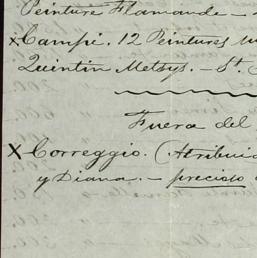 Peinture Flamande -
x Campé. 12 Peintures
Quintin Metsys. - St.
Fuera del
X Correggio. (Atribuid
y Diana. - precioso